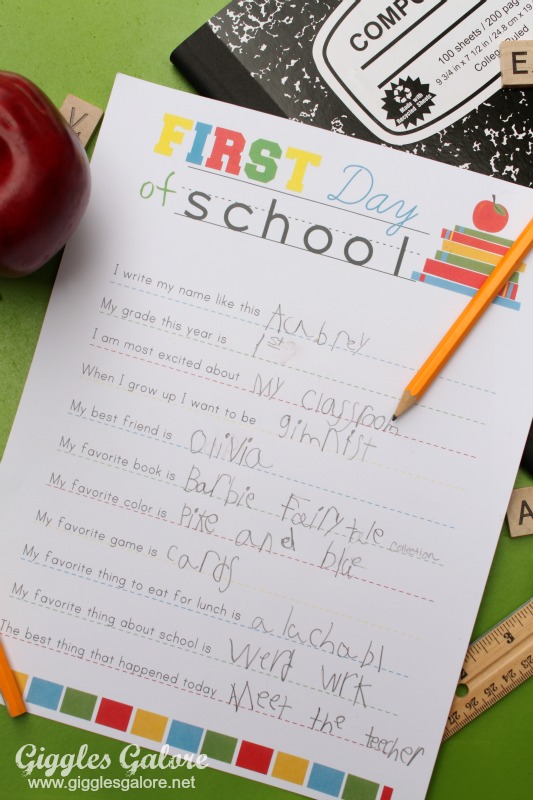 COMPO
100 sheets / 200 pag
9 3/4 in x 7 1/2 / 24.8 cm x 19.
College Ruled
Made with Recycled Sheets
E
K
FIRST Day
of school
I write my name like this Acabrey
My grade this year is 1st
I am most excited about My classroom
When I grow up I want to be gimnist
My best friend is Olivia
My favorite book is Barbie Fairytale collection
My favorite color is Pike and blae
My favorite game is cards
My favorite thing to eat for lunch is a lachabl
My favorite thing about school is werd wrk
The best thing that happened today Meet the teacher
A
24 25 26 27
Giggles Galore
www.gigglesgalore.net